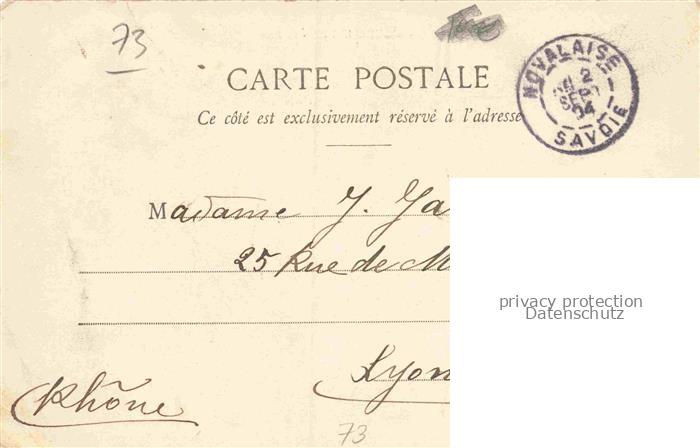 73
CARTE POSTALE
Ce côté est exclusivement réservé à l'adresse
NOVALAISE
2
SEPT
04
SAVOIE
Madame J. Ga
25 Rue de M
privacy protection
Datenschutz
Lyon
Rhône
73